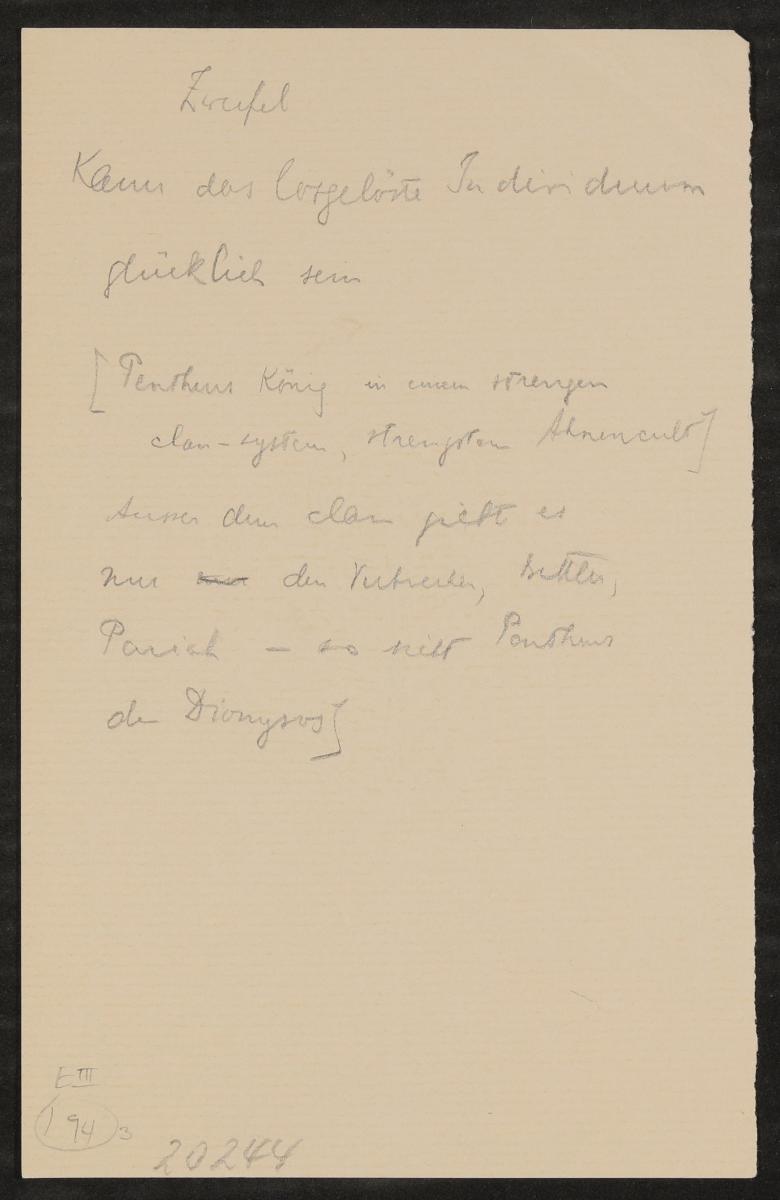 Zweifel
Kann das losgelöste Individuum
glücklich sein
[Pentheus König in einem strengen
clan-system, strengstem Ahnencult]
Ausser dem clan giebt es
nur den Verbrecher, Bettler,
Pariah – so sieht Pentheus
den Dionysos]
E III
194 3
20244